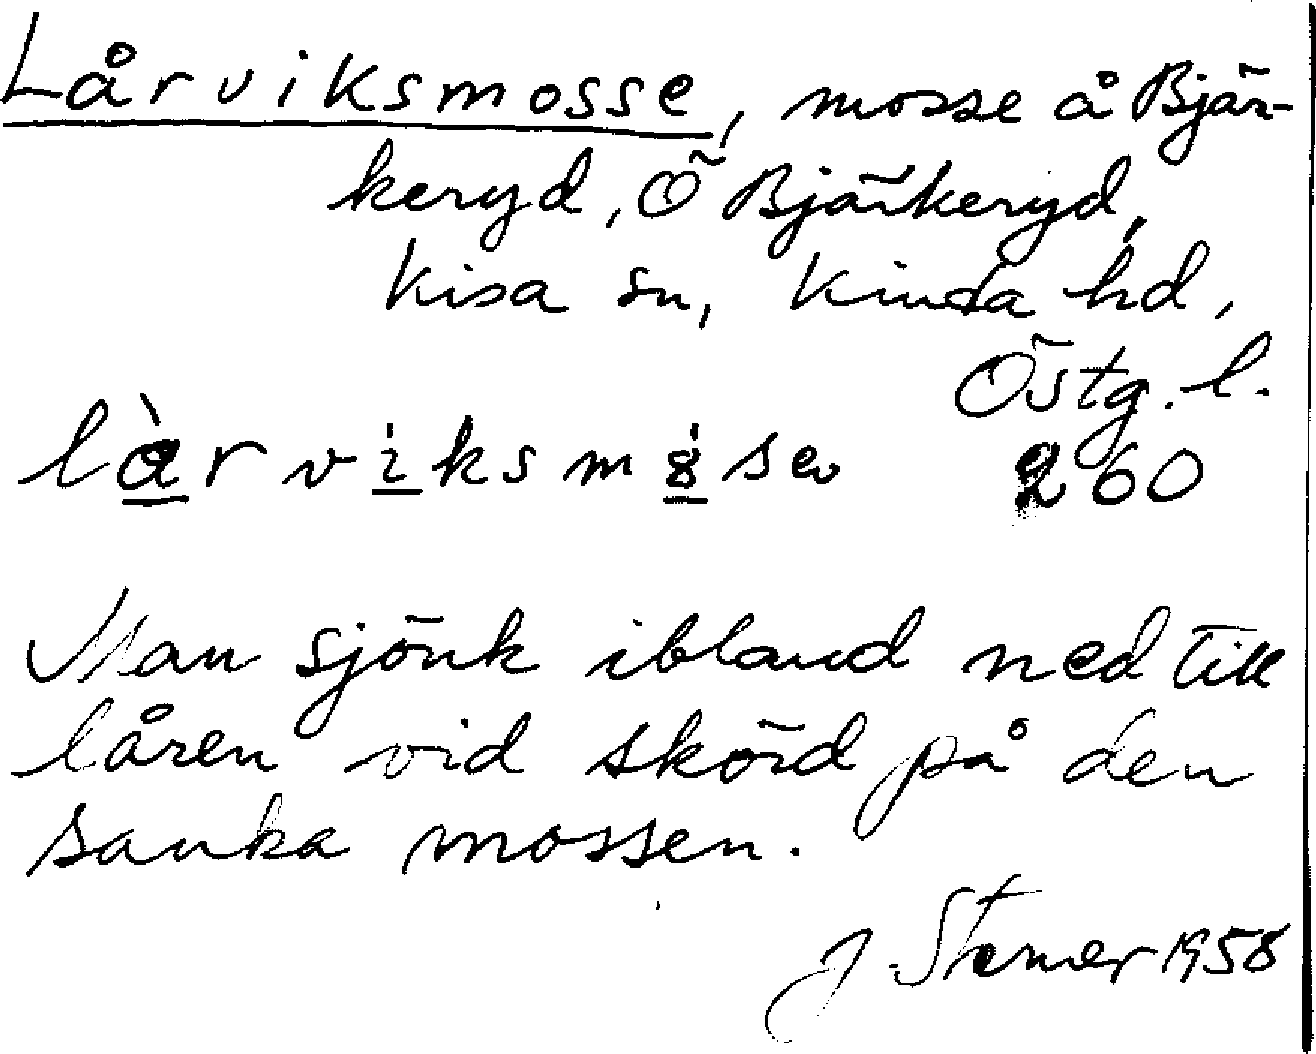 Lårviksmosse, mosse å Bjär-
keryd, Ö Bjärkeryd,
Kisa sn, Kinda hd,
Östg. l.
260
Man sjönk ibland ned till
låren vid skörd på den
sanka mossen.
J. Sterner 1958